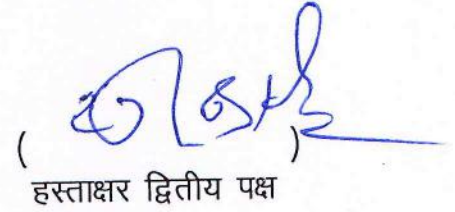 ( )
हस्ताक्षर द्वितीय पक्ष